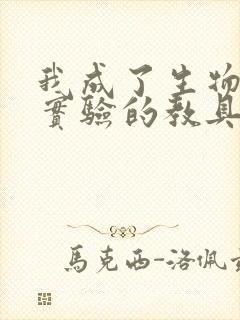 我成了生物
實驗的教具
馬克西-洛佩